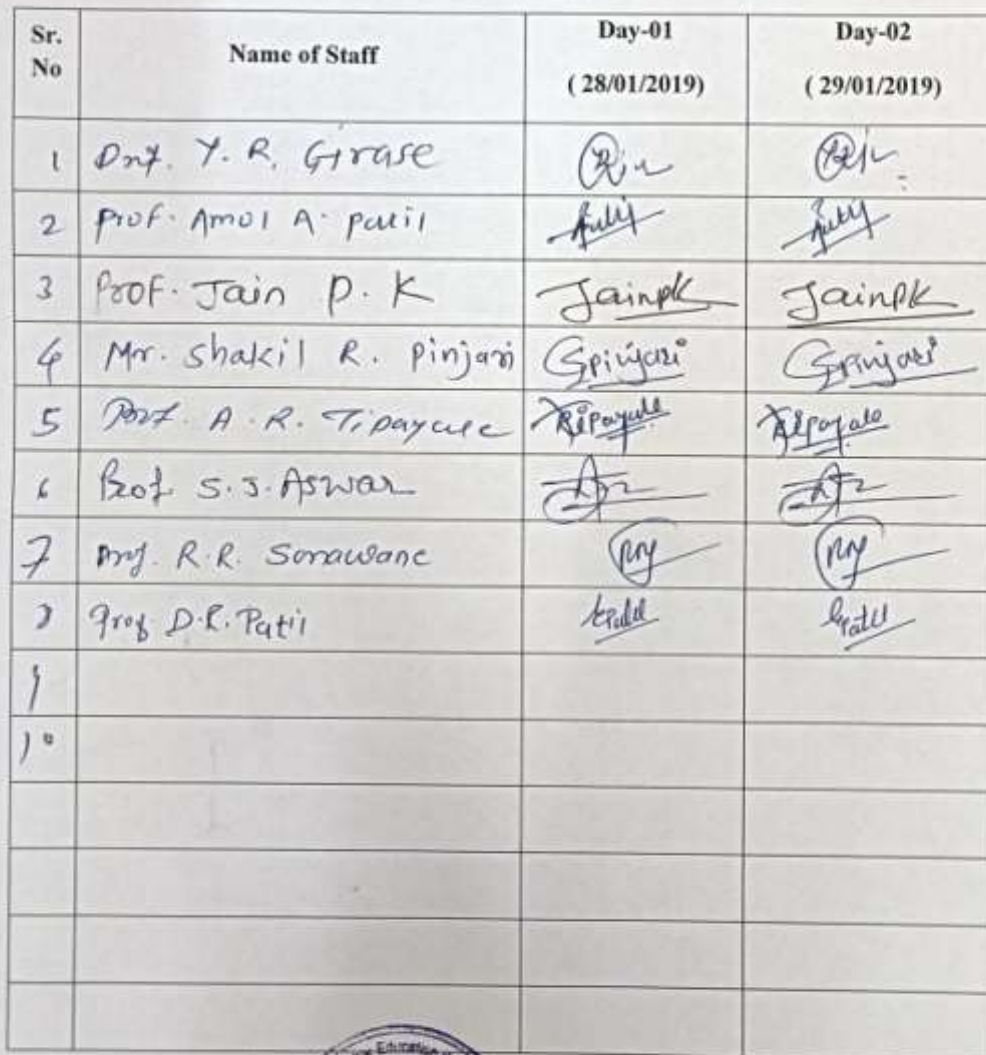 Sr. No Name of Staff Day-01 ( 28/01/2019) Day-02 ( 29/01/2019)
1 Prof. Y. R. Girase
2 Prof. Amol A. Patil
3 Prof. Jain P. K Jainpk Jainpk
4 Mr. Shakil R. Pinjari Spinjari Spinjari
5 Prof. A. R. Tipayale
6 Prof S. J. Aswar
7 Prof. R. R. Sonawane
8 Prof D. R. Patil
9
10
Education